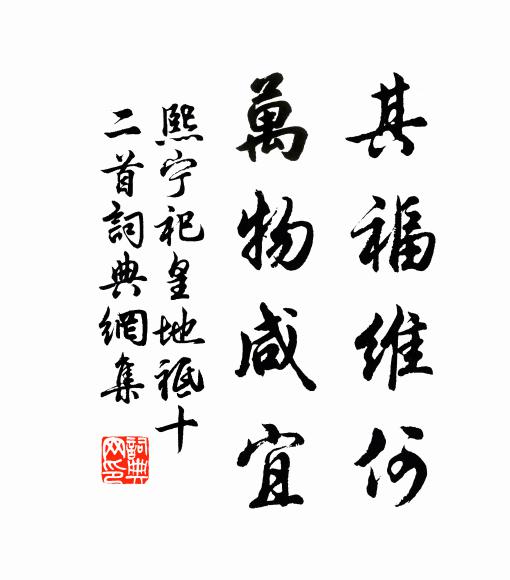 其福維何
萬物咸宜
熙宁祀皇地祗十
二首詞典網集
詞典
网印